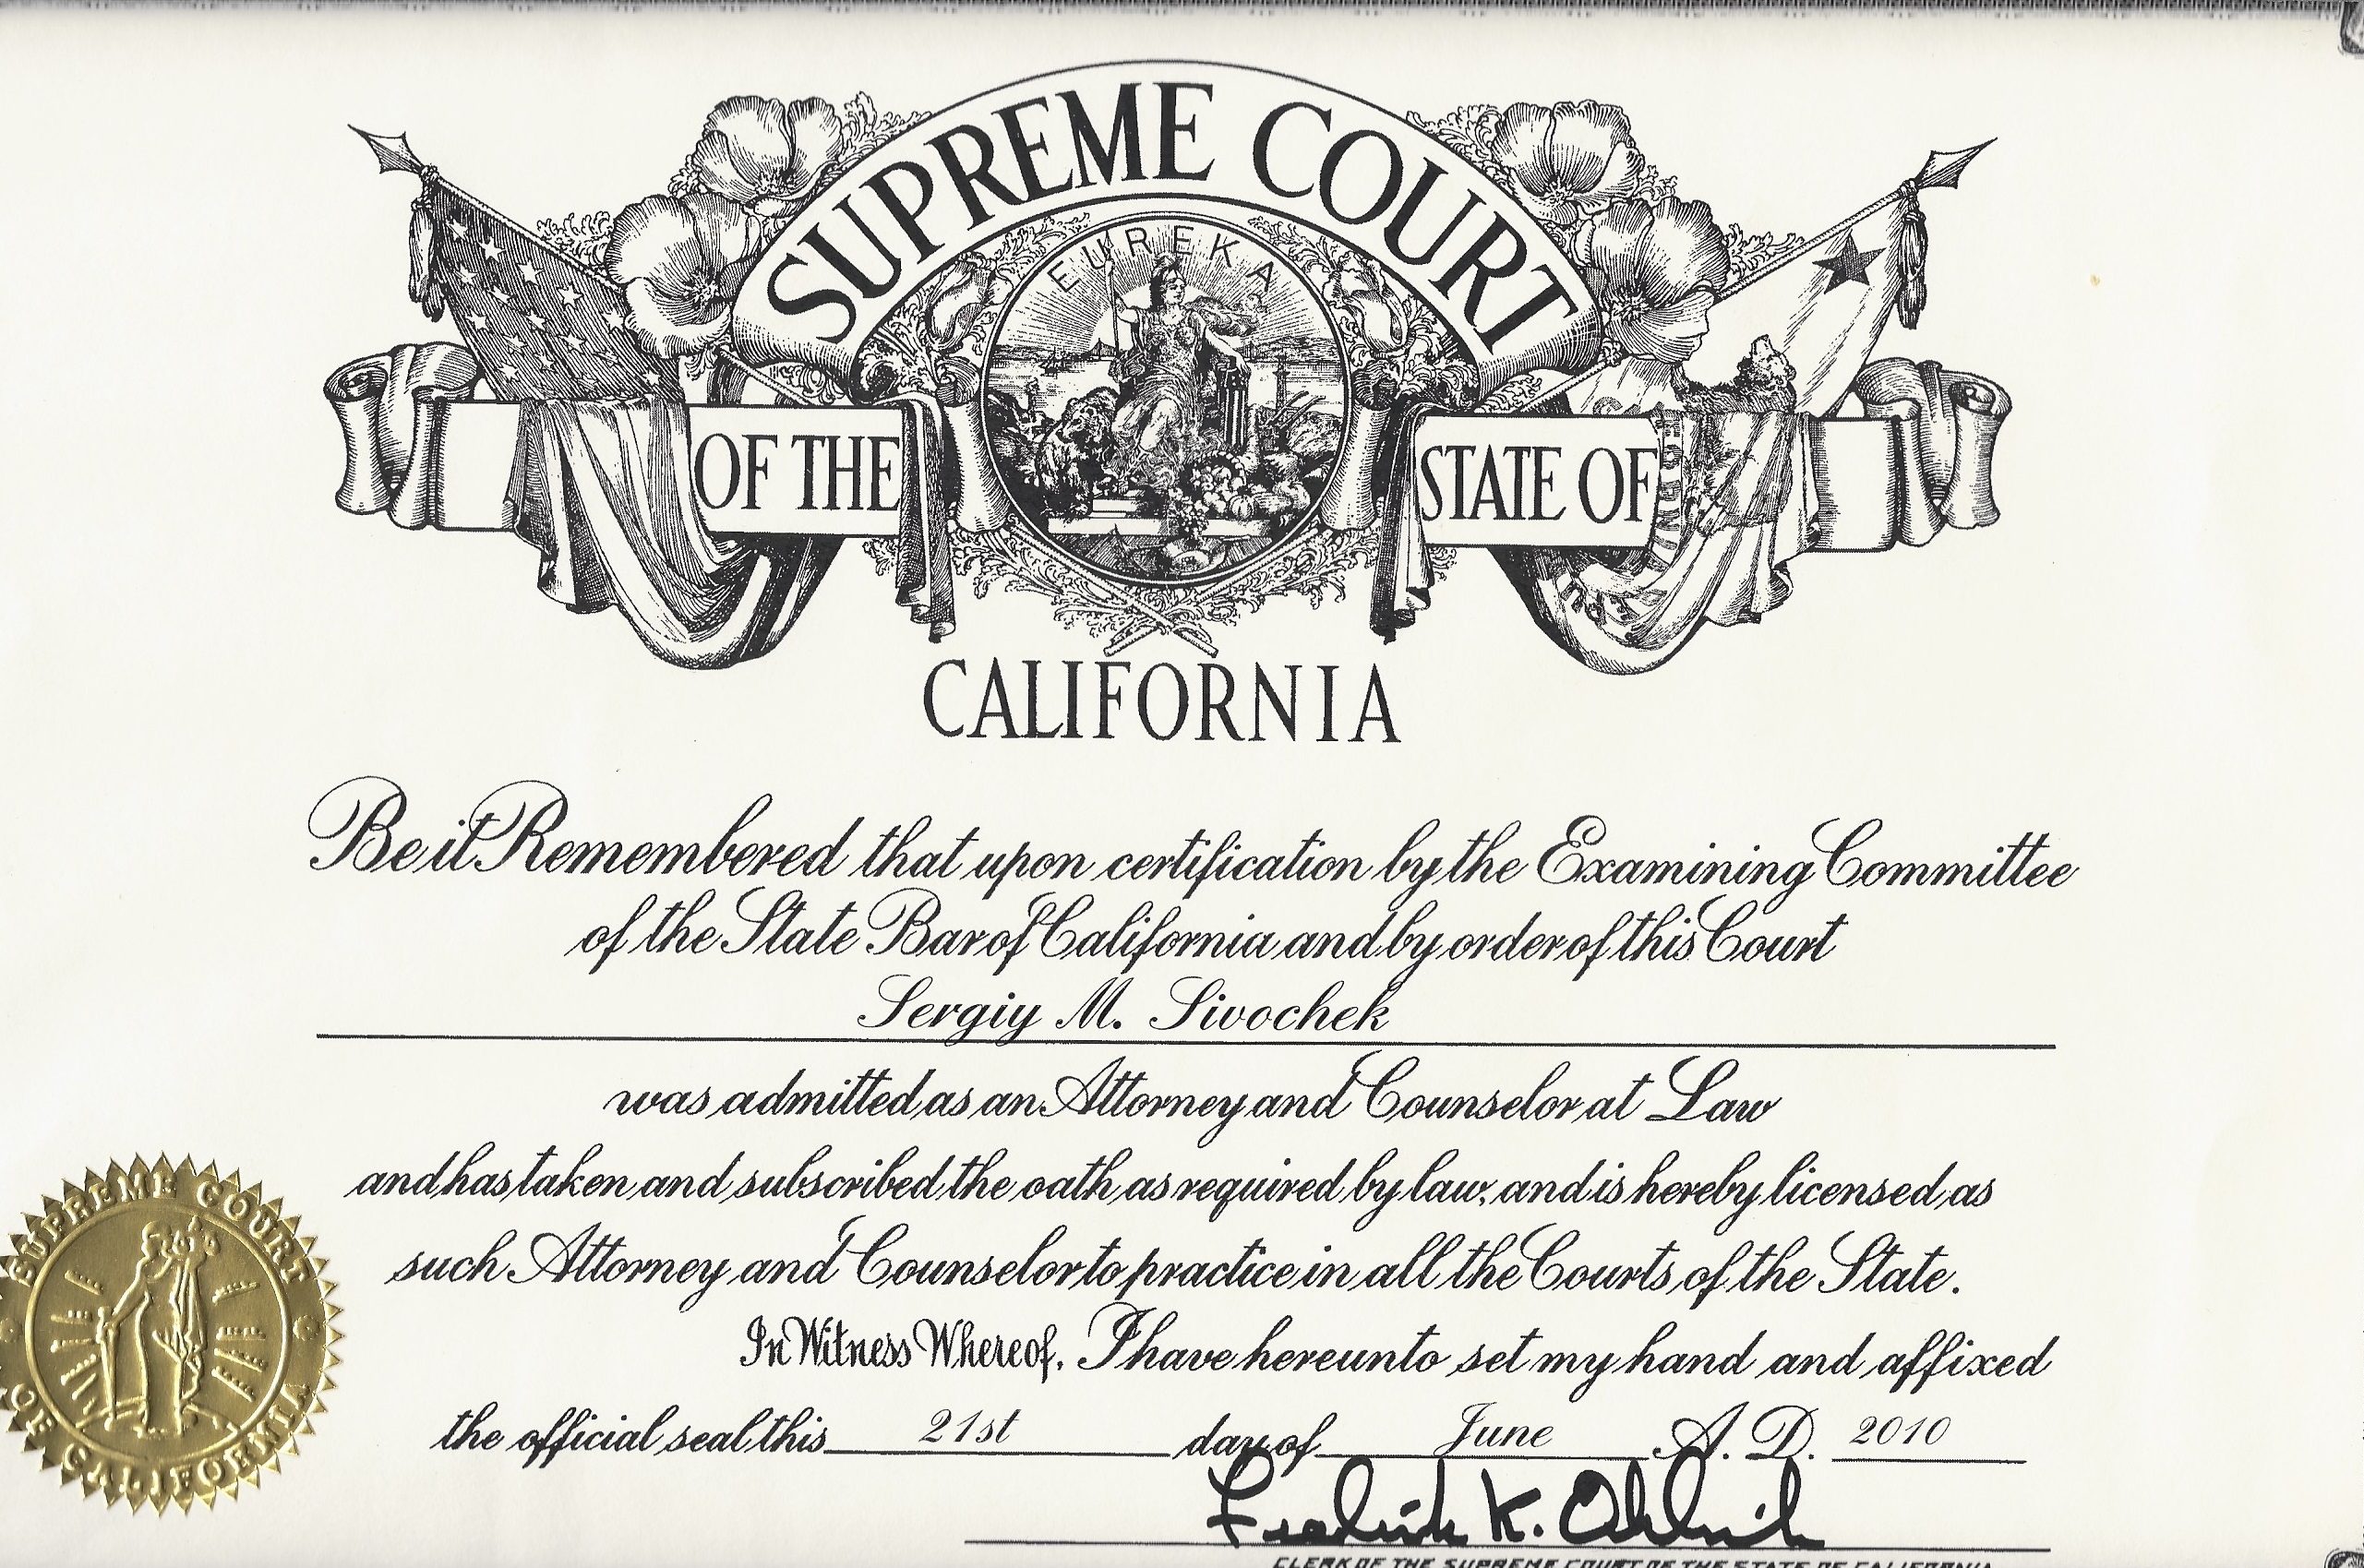 SUPREME COURT
EUREKA
OF THE STATE OF
CALIFORNIA
Be it Remembered that upon certification by the Examining Committee
of the State Bar of California and by order of this Court
Sergiy M. Sivochek
was admitted as an Attorney and Counselor at Law
and has taken and subscribed the oath as required by law, and is hereby licensed as
such Attorney and Counselor to practice in all the Courts of the State.
In Witness Whereof, I have hereunto set my hand and affixed
the official seal this 21st day of June A. D. 2010
SUPREME COURT
OF CALIFORNIA
Frederick K. Ohlrich
CLERK OF THE SUPREME COURT OF THE STATE OF CALIFORNIA